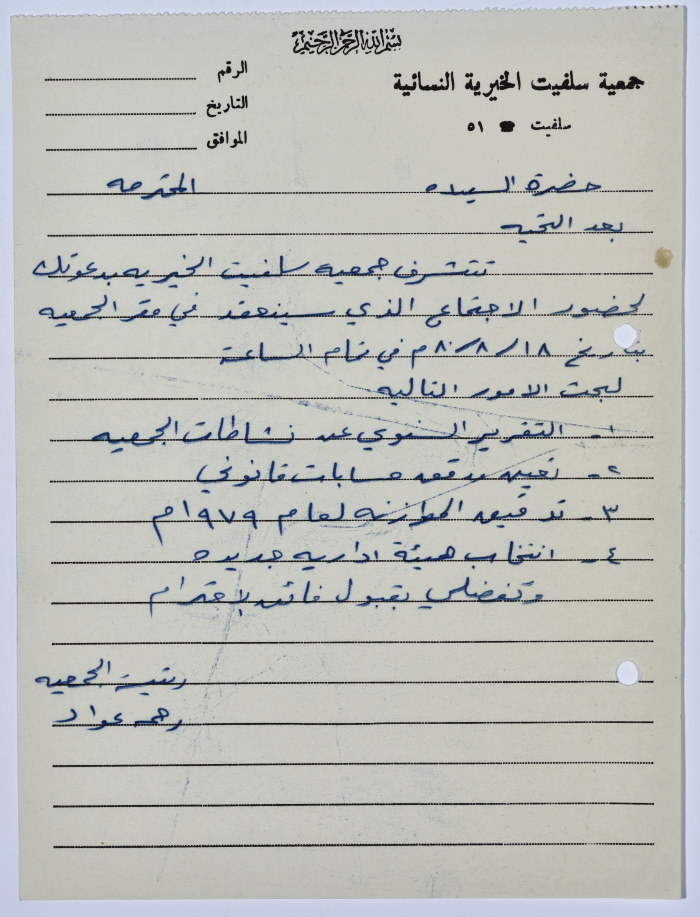 بسم الله الرحمن الرحيم
جمعية سلفيت الخيرية النسائية
سلفيت ☎ ٥١
الرقم
التاريخ
الموافق
حضرة السيده المحترمه
بعد التحيه
تتشرف جمعيه سلفيت الخيريه بدعوتك
لحضور الاجتماع الذي سينعقد في مقر الجمعيه
بتاريخ ١٨/٨/٨٠م في تمام الساعة
لبحث الامور التاليه
١- التقرير السنوي عن نشاطات الجمعيه
٢- تعيين مدقق حسابات قانوني
٣- تدقيق الموازنه لعام ١٩٧٩م
٤- انتخاب هيئة اداريه جديده
وتفضلي بقبول فائق الاحترام
رئيسة الجمعيه
رحمه عواد